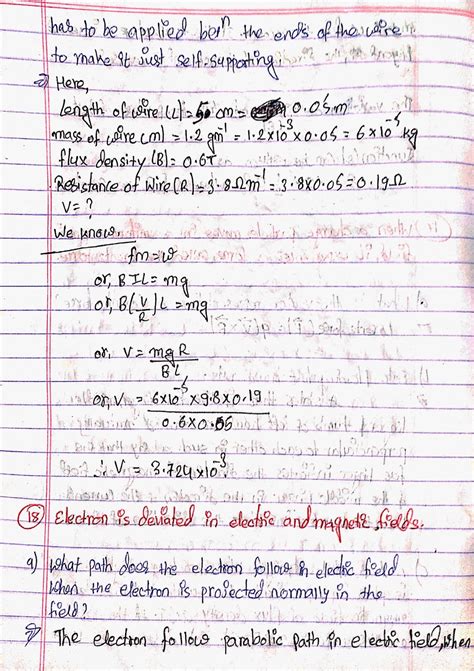 has to be applied betn the ends of the wire
to make it just self-supporting.
⇒ Here,
Length of wire (L) = 50 cm = 0.05m
mass of wire (m) = 1.2 gm⁻¹ = 1.2×10⁻³×0.05 = 6×10⁻⁵ kg
flux density (B) = 0.6T
Resistance of wire (R) = 3.8Ωm⁻¹ = 3.8×0.05 = 0.19Ω
V = ?
We know,
fm = w
or, BIL = mg
or, B(V/R)L = mg
or, V = mgR / BL
or, V = 6×10⁻⁵×9.8×0.19 / 0.6×0.05
∴ V = 3.724×10⁻³
18) Electron is deviated in electric and magnetic fields.
a) What path does the electron follow in electic field
when the electron is projected normally in the
field?
⇒ The electron follow parabolic path in electric field, when